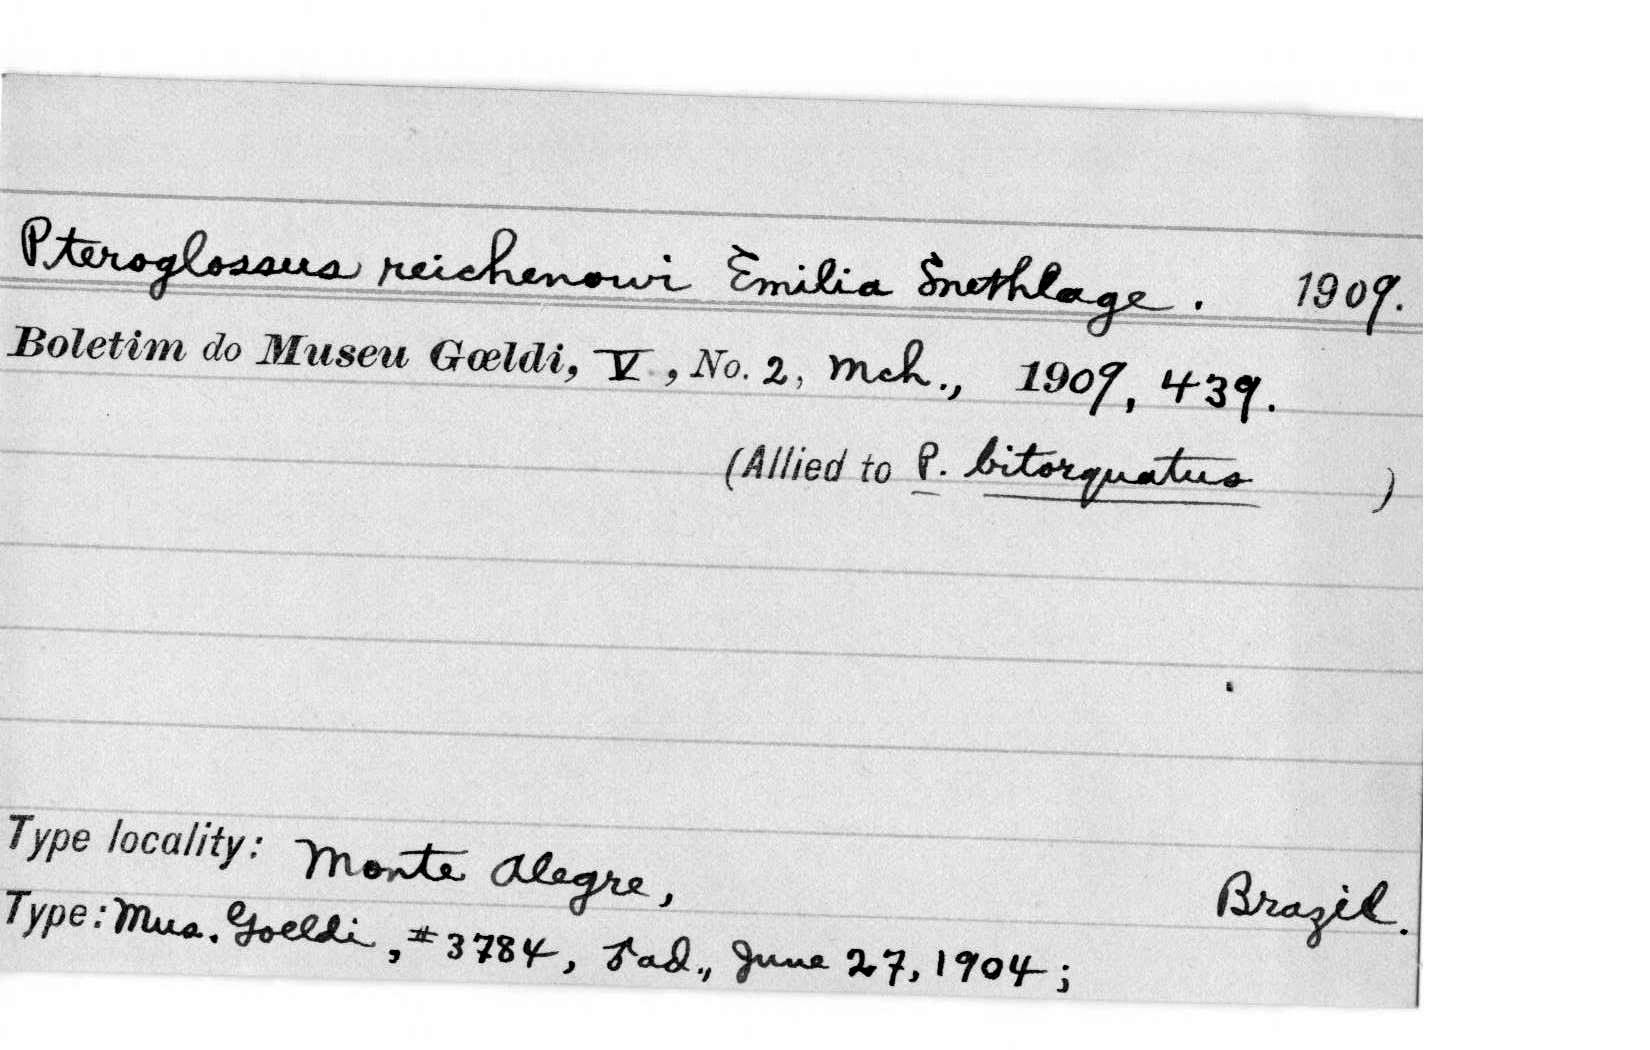 Pteroglossus reichenowi Emilia Snethlage. 1909.
Boletim do Museu Gœldi, V, No. 2, Mch., 1909, 439.
(Allied to P. bitorquatus )
Type locality: Monte Alegre, Brazil.
Type: Mus. Goeldi, #3784, ♂ ad., June 27, 1904;